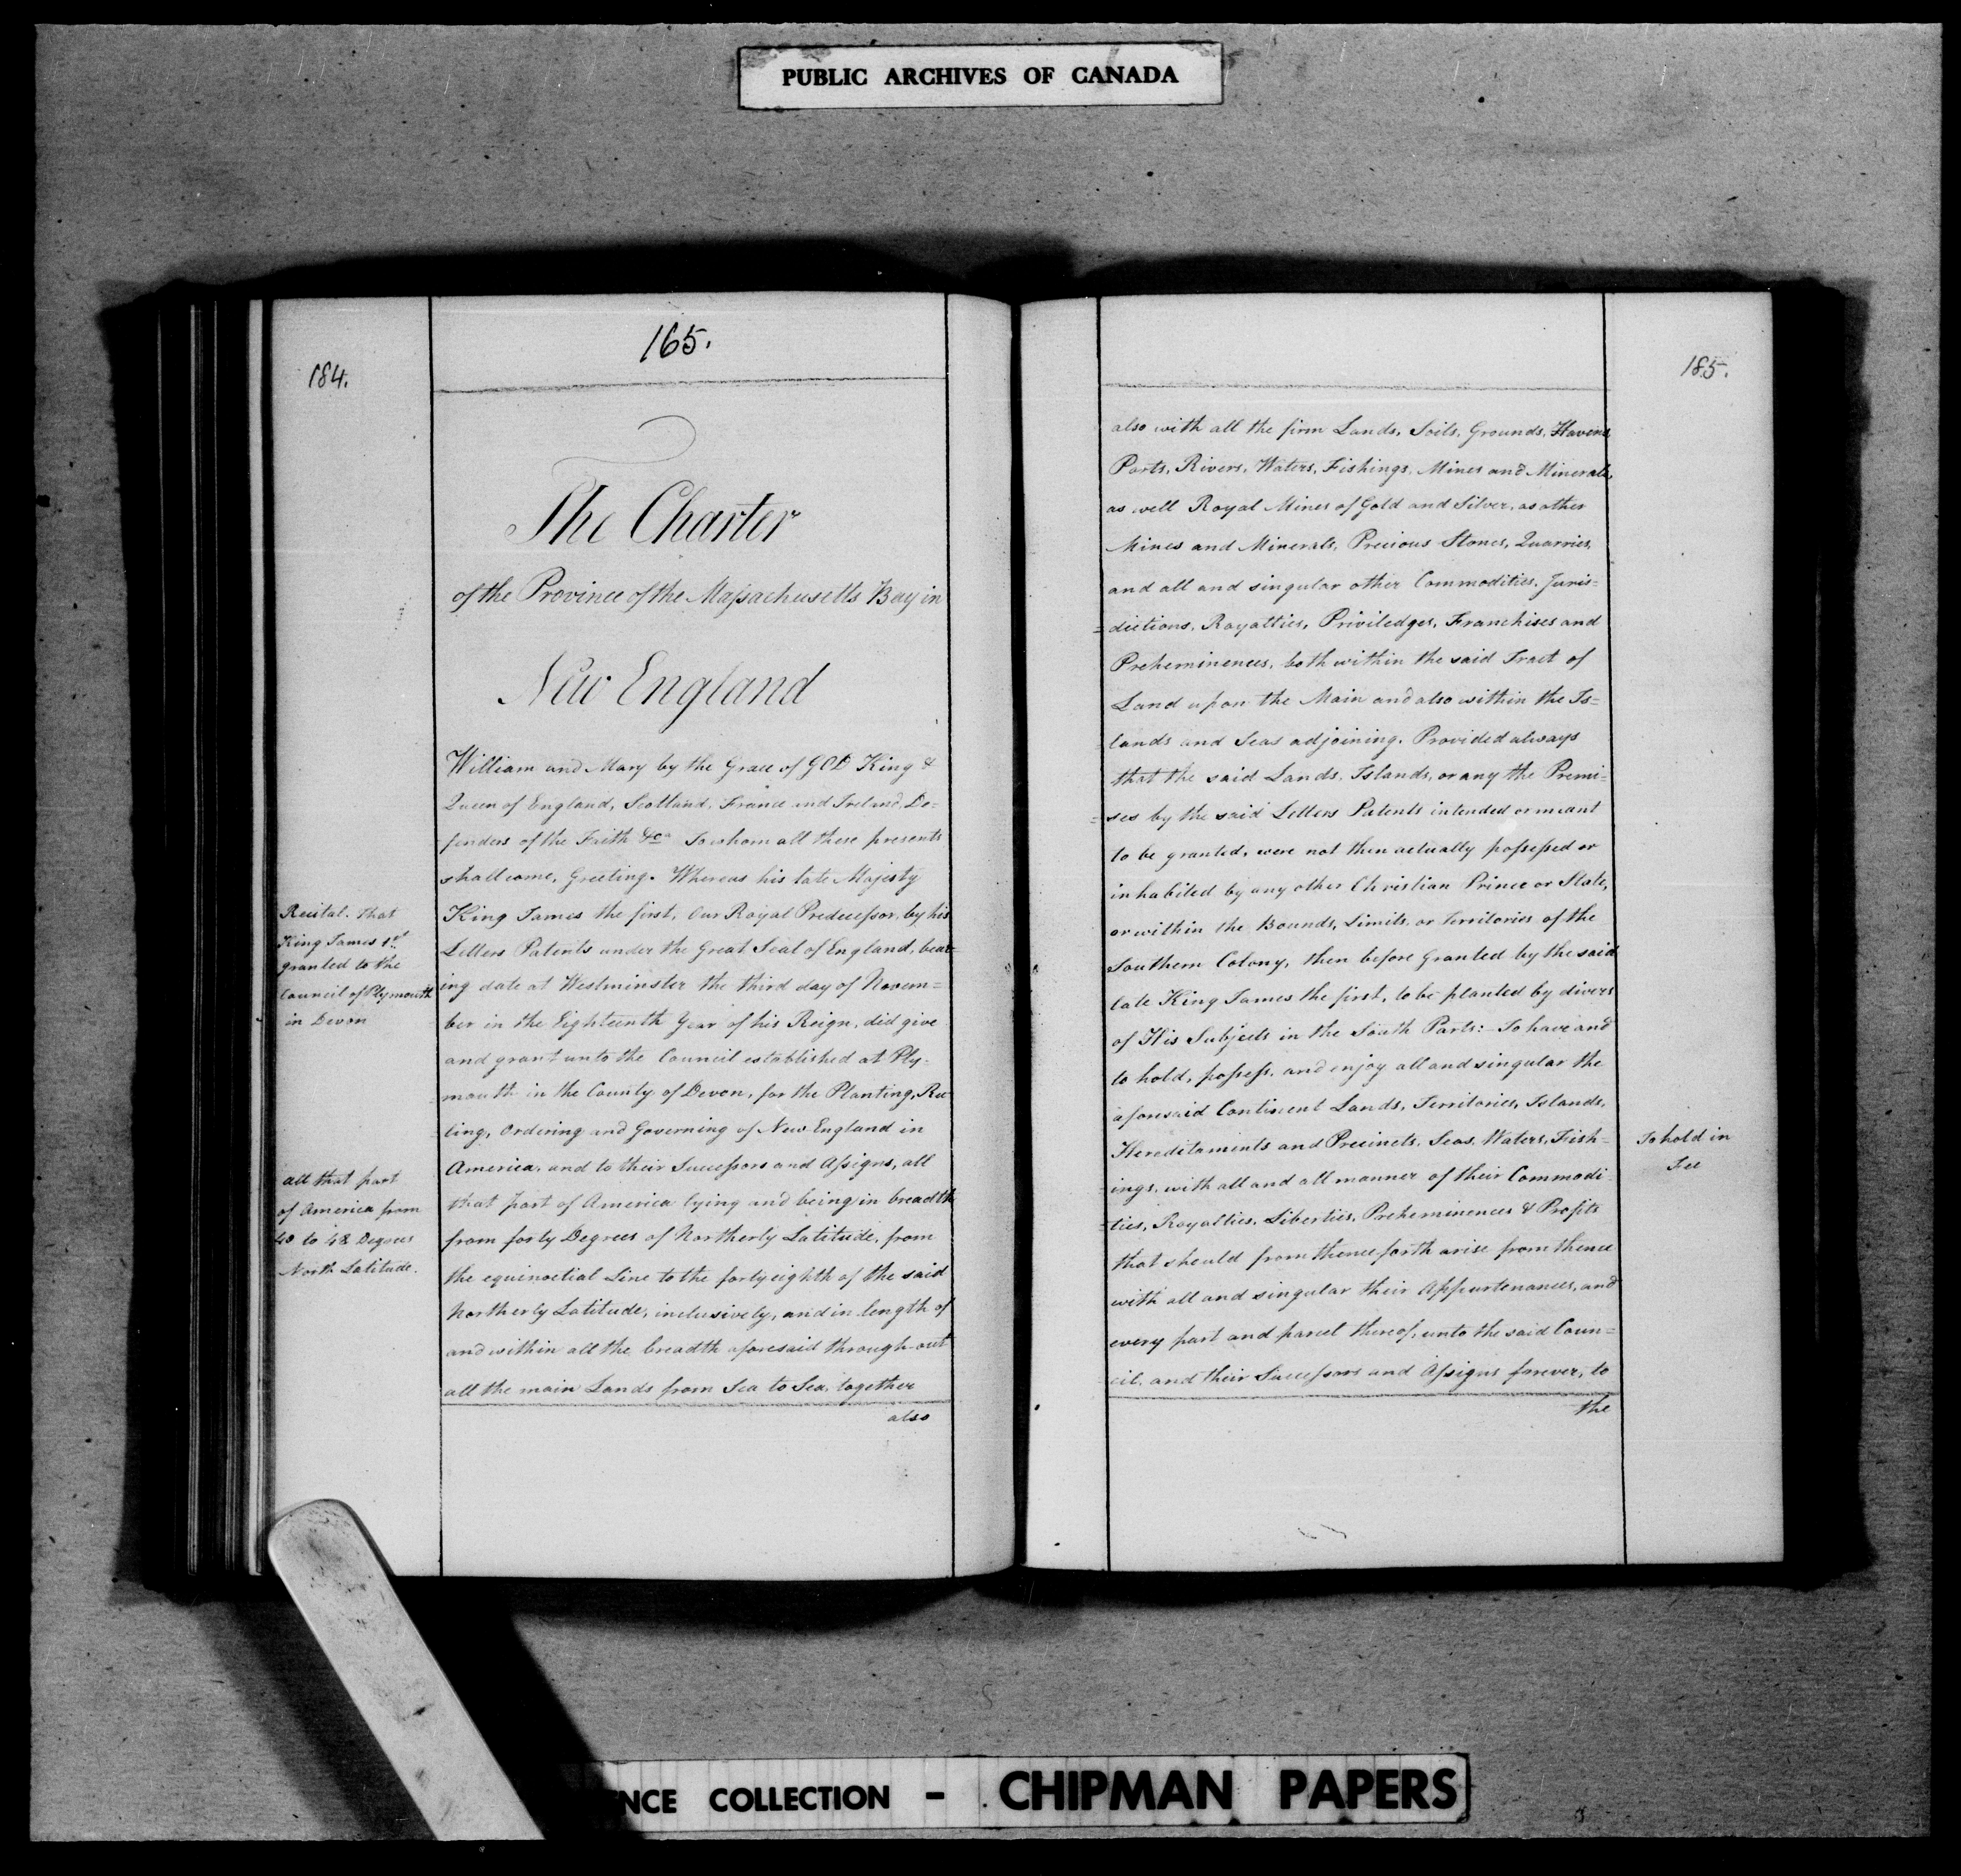 PUBLIC ARCHIVES OF CANADA
184.
165.
The Charter
of the Province of the Maſsachusetts Bay in
New England
William and Mary by the Grace of GOD King &
Queen of England, Scotland, France and Ireland, De=
fenders of the Faith &c. To whom all these presents
shall come, Greeting. Whereas his late Majesty
King James the first, Our Royal Predeceſsor, by his
Letters Patents under the Great Seal of England, bear=
ing date at Westminster the third day of Novem=
ber in the Eighteenth Year of his Reign, did give
and grant unto the Council established at Ply-
mouth in the County of Devon, for the Planting, Ru
=ling, Ordering and Governing of New England in
America, and to their Succeſsors and Aſsigns, all
that part of America lying and being in breadth
from forty Degrees of Northerly Latitude, from
the equinoctial Line to the forty eighth of the said
Northerly Latitude, inclusively, and in length of
and within all the breadth aforesaid through-out
all the main Lands from Sea to Sea, together
also
Recital. That
King James 1st
granted to the
Council of Plymouth
in Devon
all that part
of America from
40 to 48 Degrees
North Latitude.
185.
also with all the firm Lands, Soils, Grounds, Havens,
Ports, Rivers, Waters, Fishings, Mines and Minerals,
as well Royal Mines of Gold and Silver, as other
Mines and Minerals, Precious Stones, Quarries,
and all and singular other Commodities, Juris=
=dictions, Royalties, Priviledges, Franchises and
Preheminences, both within the said Tract of
Land upon the Main and also within the Is=
lands and Seas adjoining. Provided always
that the said Lands, Islands, or any the Premi=
=ses by the said Letters Patents intended or meant
to be granted, were not then actually poſseſsed or
inhabited by any other Christian Prince or State,
or within the Bounds, Limits, or Territories of the
Southern Colony, then before granted by the said
late King James the first, to be planted by divers
of His Subjects in the South Parts:- To have and
to hold, poſseſs, and enjoy all and singular the
aforesaid Continent Lands, Territories, Islands,
Hereditaments and Precincts, Seas, Waters, Fish=
ings, with all and all manner of their Commodi
=ties, Royalties, Liberties, Preheminences & Profits
that should from thenceforth arise from thence
with all and singular their Appurtenances, and
every part and parcel thereof, unto the said Coun=
cil, and their Succeſsors and Aſsigns forever, to
the
To hold in
Fee
NCE COLLECTION - . CHIPMAN PAPERS